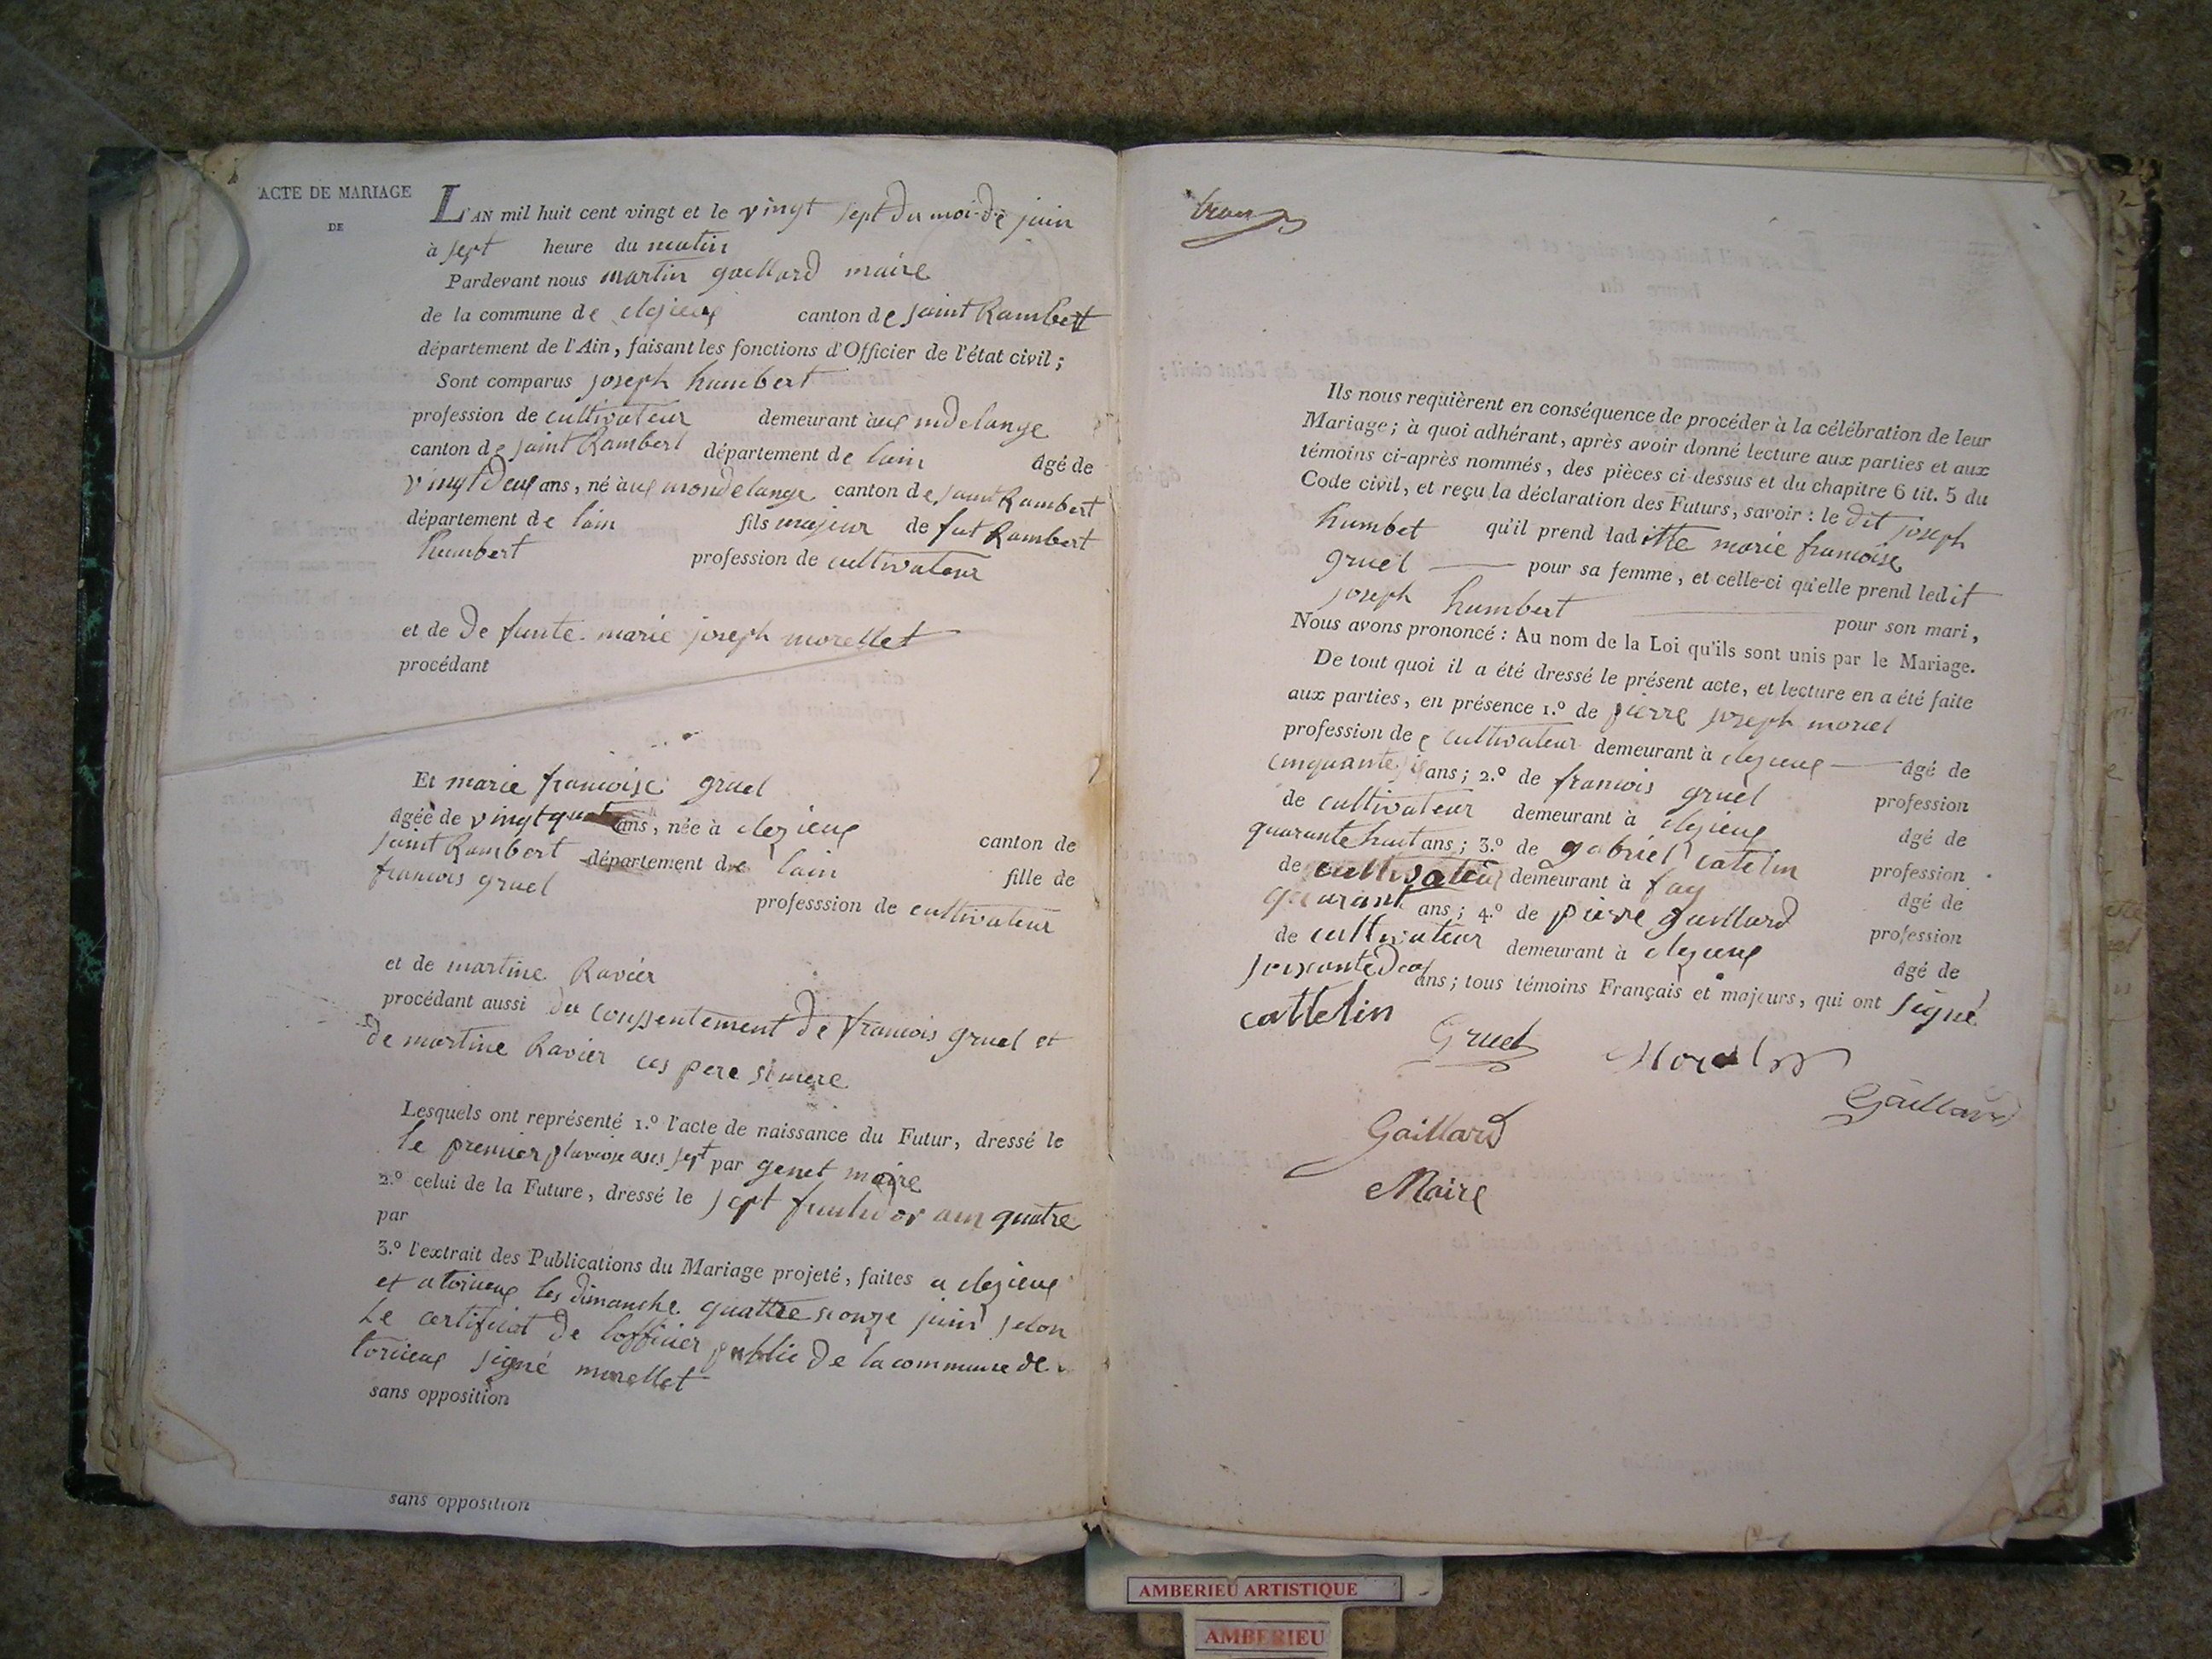 ACTE DE MARIAGE
DE
L'AN mil huit cent vingt et le vingt sept du moi de juin
à sept heure du matin
Pardevant nous martin gaillard maire
de la commune de clezieux canton de saint Rambert
département de l'Ain, faisant les fonctions d'Officier de l'état civil;
Sont comparus joseph humbert
profession de cultivateur demeurant à
canton de saint Rambert département de lain âgé de
vingt deux ans, né à aux mondelange canton de saint Rambert
département de lain fils majeur de fut Rambert
humbert profession de cultivateur
et de de funte marie joseph morellet
procédant
Et marie francoise gruel
âgée de vingt ans, née à clezieux canton de
saint Rambert département de lain fille de
francois gruel professsion de cultivateur
et de martine Ravier
procédant aussi du conssentement de francois gruel et
de martine Ravier ces pere et mere
Lesquels ont représenté 1.º l'acte de naissance du Futur, dressé le
le premier pluviose ans sept par genet maire
2.º celui de la Future, dressé le sept an quatre
par
3.º l'extrait des Publications du Mariage projeté, faites a clezieux
et a torcieux les dimanche quattre et onze juin selon
Le certificat de lofficier public de la commune de
torcieux signé morellet
sans opposition
sans opposition
Ils nous requièrent en conséquence de procéder à la célébration de leur
Mariage; à quoi adhérant, après avoir donné lecture aux parties et aux
témoins ci-après nommés, des pièces ci-dessus et du chapitre 6 tit. 5 du
Code civil, et reçu la déclaration des Futurs, savoir : le dit joseph
humbet qu'il prend laditte marie francoise
gruel pour sa femme, et celle-ci qu'elle prend ledit
joseph humbert pour son mari,
Nous avons prononcé : Au nom de la Loi qu'ils sont unis par le Mariage.
De tout quoi il a été dressé le présent acte, et lecture en a été faite
aux parties, en présence 1.º de pierre joseph morel
profession de cultivateur demeurant à clezieux âgé de
cinquante ans; 2.º de francois gruel profession
de cultivateur demeurant à clezieux âgé de
quarante huit ans; 3.º de gabriel catelin profession
de cultivateur demeurant à fay âgé de
quarant ans; 4.º de pierre gaillard profession
de cultivateur demeurant à clezieux âgé de
soixante deux ans; tous témoins Français et majeurs, qui ont signé
cattelin
Gruel
Morel
Gaillard
Gaillard
Maire
AMBERIEU ARTISTIQUE
AMBERIEU